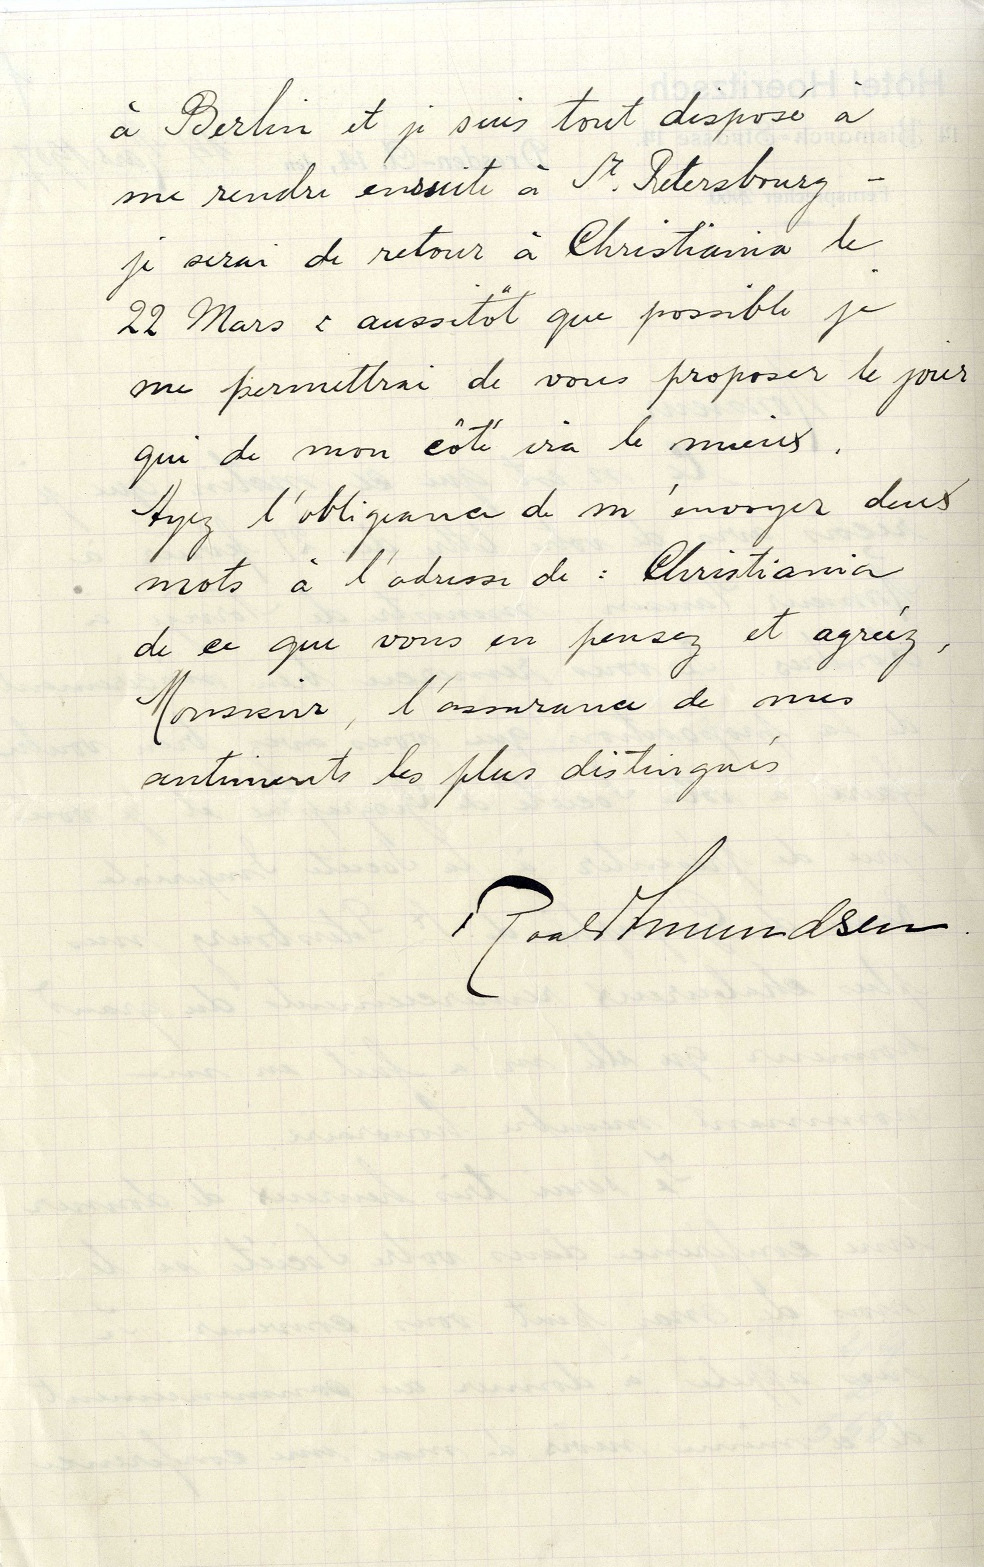 à Berlin et je suis tout disposé à
me rendre ensuite à St. Petersbourg –
je serai de retour à Christiania le
22 Mars & aussitôt que possible je
me permettrai de vous proposer le jour
qui de mon côté ira le mieux.
Ayez l'obligeance de m'envoyer deux
mots à l'adresse de : Christiania
de ce que vous en pensez et agréez,
Monsieur, l'assurance de mes
sentiments les plus distingués
Roald Amundsen.